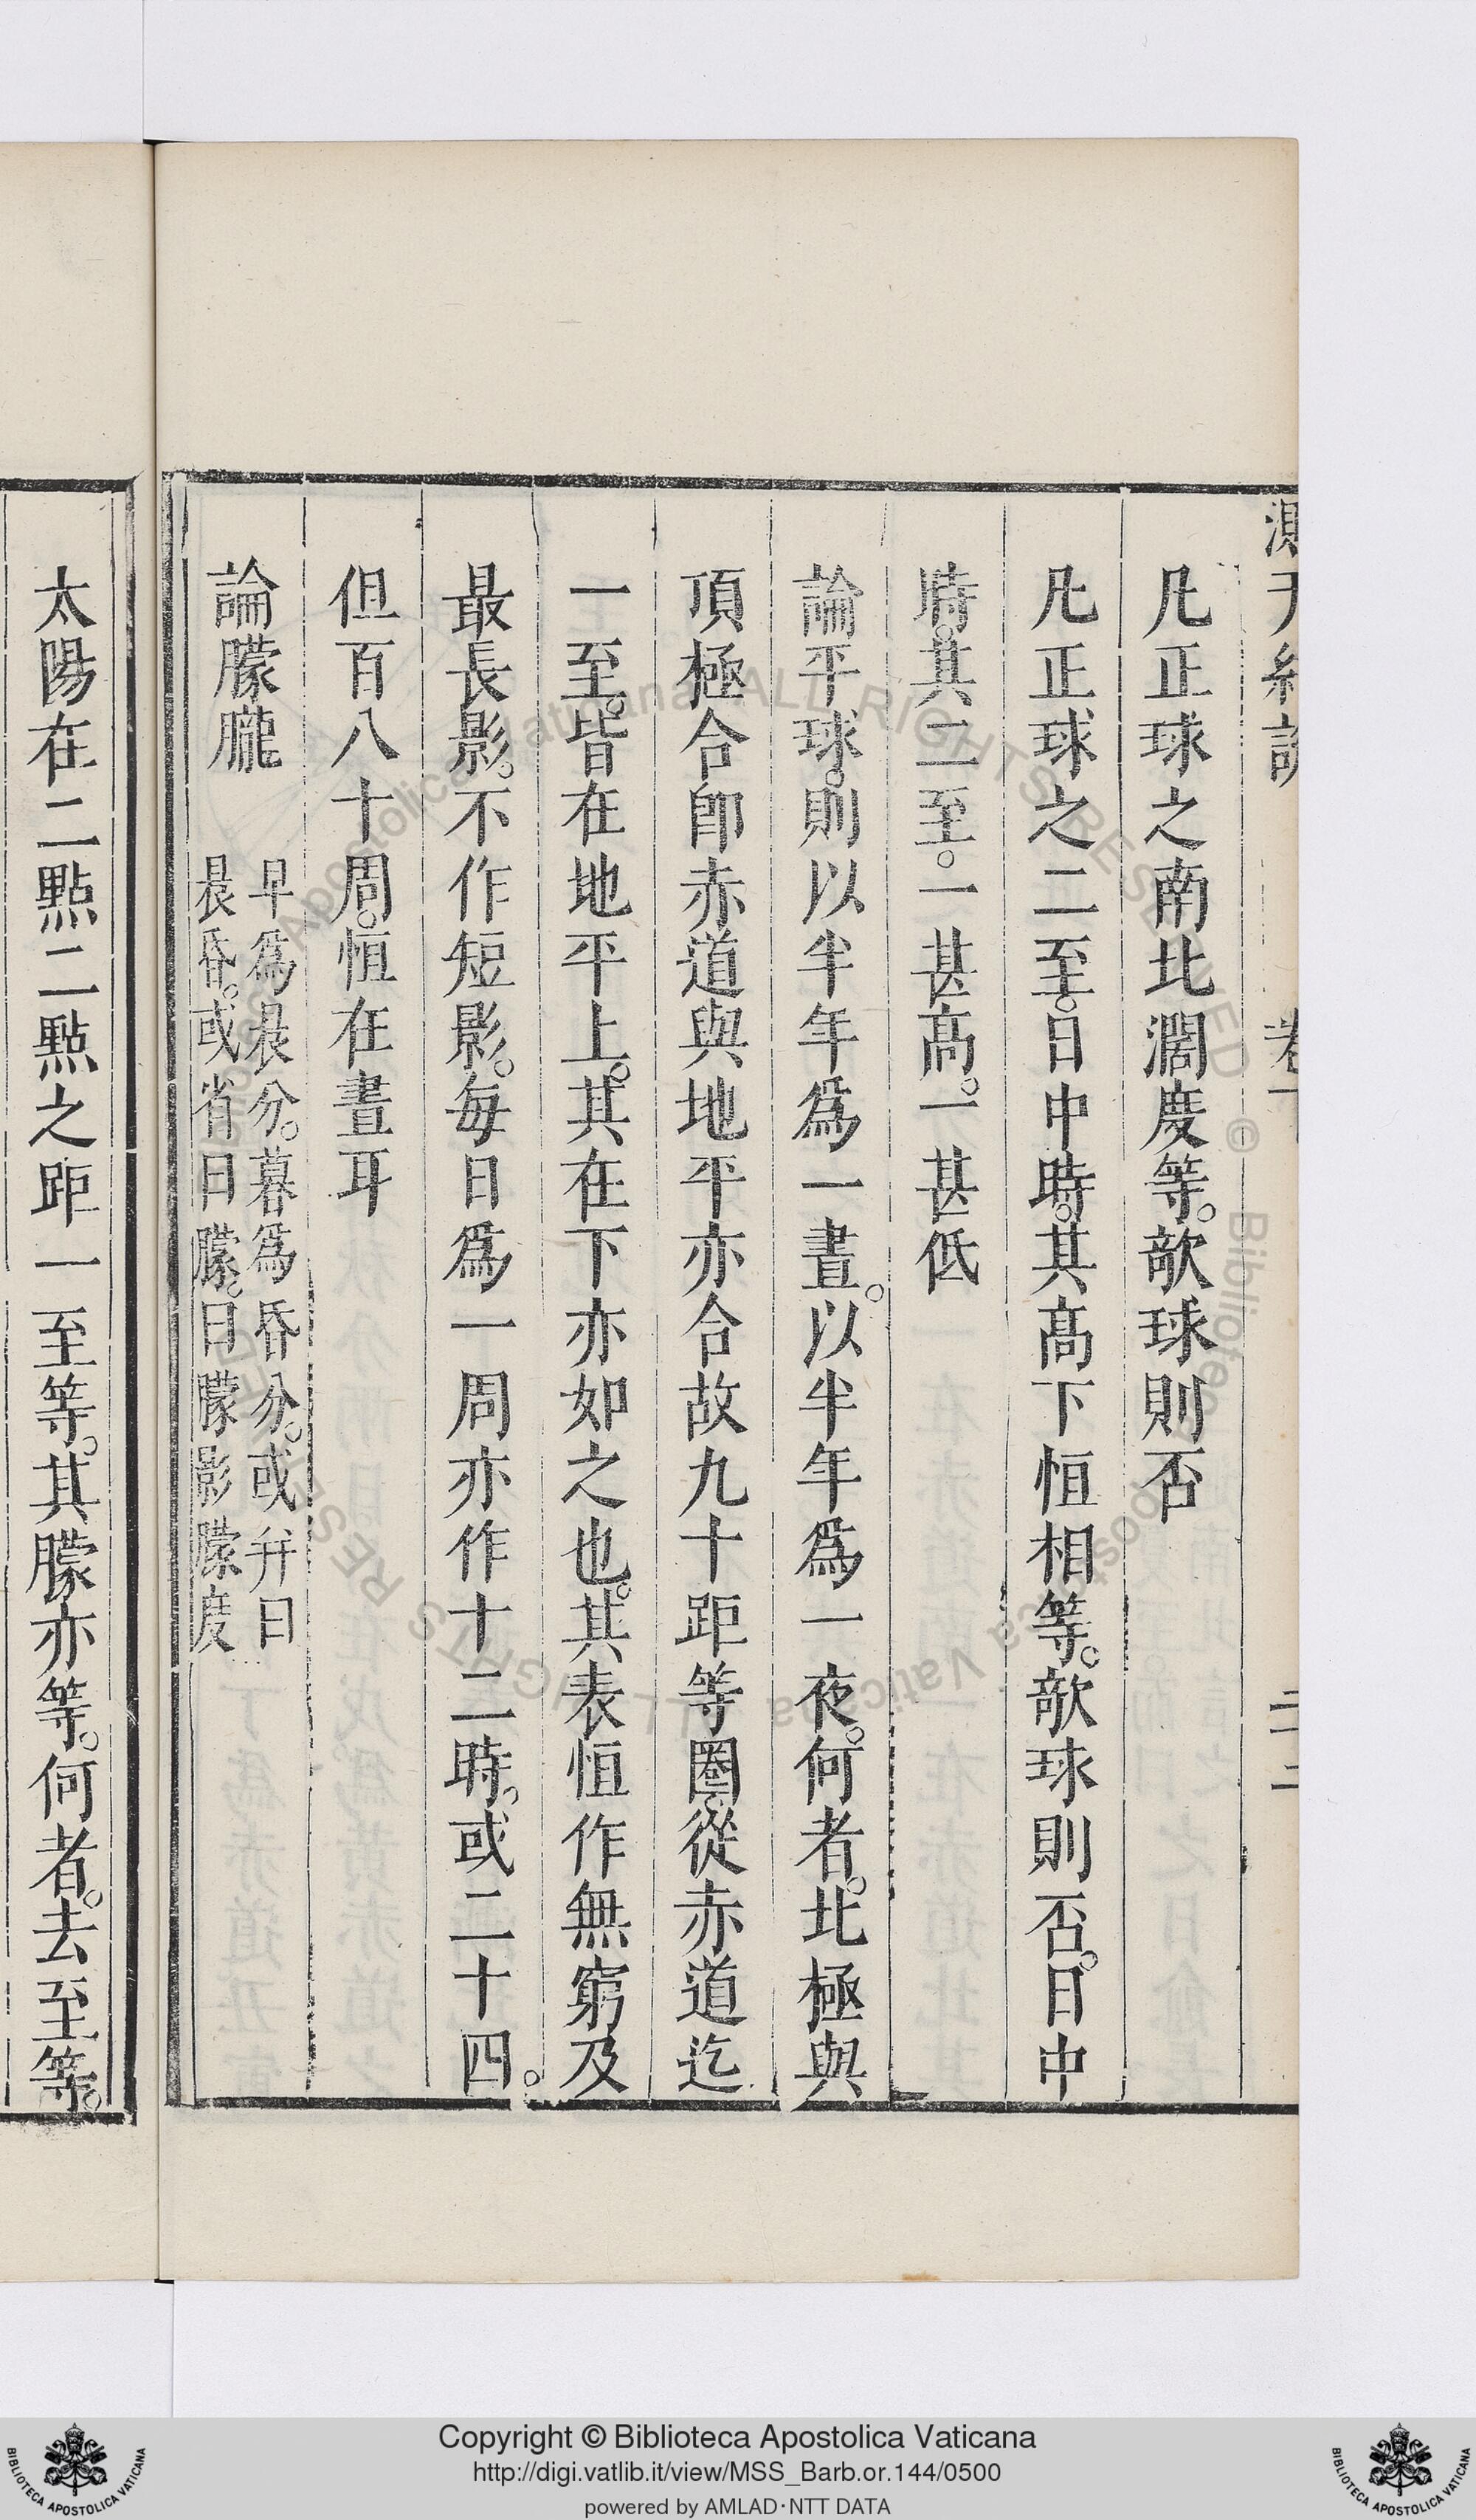 測天約說 卷下 二十二
凡正球之南北濶度等。欹球則否
凡正球之二至。日中時。其髙下恒相等。欹球則否。日中
時。其二至。一甚髙。一甚低
論平球。則以半年爲一晝。以半年爲一夜。何者。北極與
頂極合卽赤道與地平亦合故九十距等圈。從赤道迄
一至。皆在地平上。其在下亦如之也。其表恒作無窮及
最長影。不作短影。每日爲一周亦作十二時。或二十四。
但百八十周。恒在晝耳
論朦朧 早爲晨分。暮爲昏分。或幷日
晨昏。或省曰朦。曰朦影朦度
太陽在二點二點之距一至等。其朦亦等。何者。去至等。
Copyright © Biblioteca Apostolica Vaticana
http://digi.vatlib.it/view/MSS_Barb.or.144/0500
powered by AMLAD·NTT DATA
BIBLIOTECA APOSTOLICA VATICANA
BIBLIOTECA APOSTOLICA VATICANA